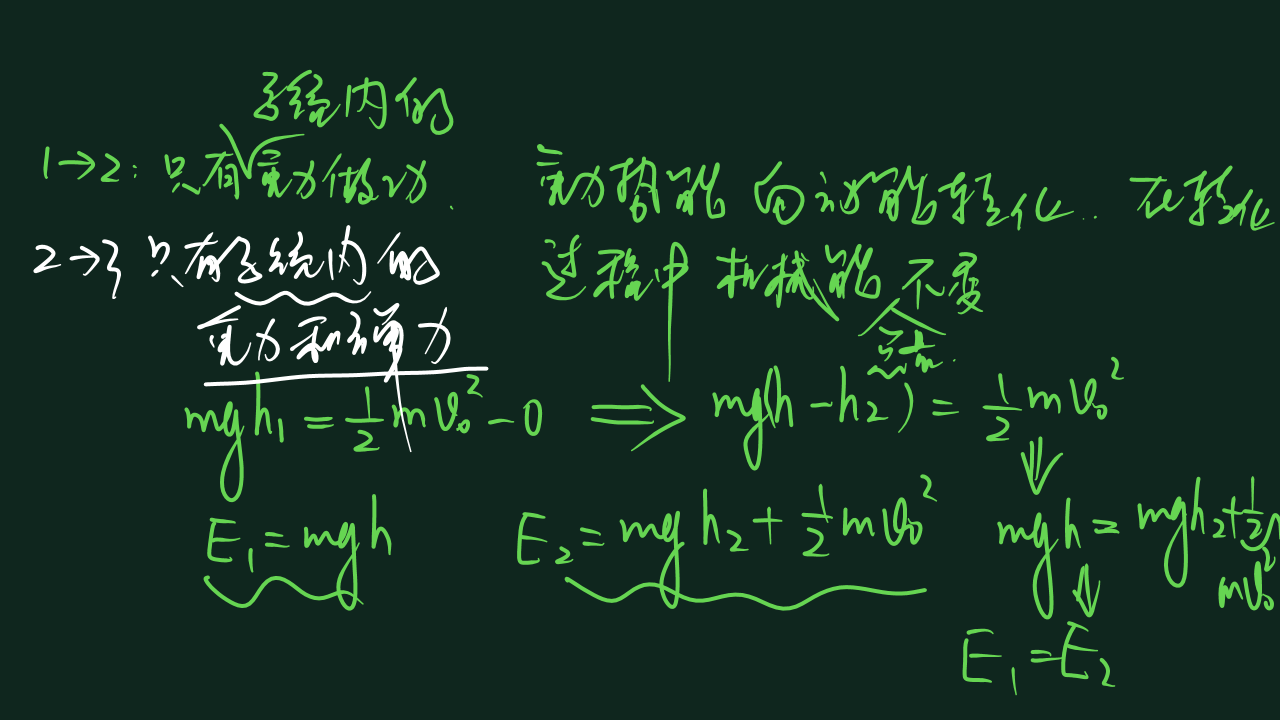 系统内的
1→2: 只有√重力做功.
2→3 只有系统内的
重力和弹力
重力势能向动能转化.. 在转化
过程中机械能不变
总量.
mgh₁ = ½mv₀² - 0 ⇒ mg(h-h₂) = ½mv₀²
⇓
E₁ = mgh
E₂ = mgh₂ + ½mv₀²
mgh = mgh₂ + ½
mv₀²
⇓
E₁ = E₂